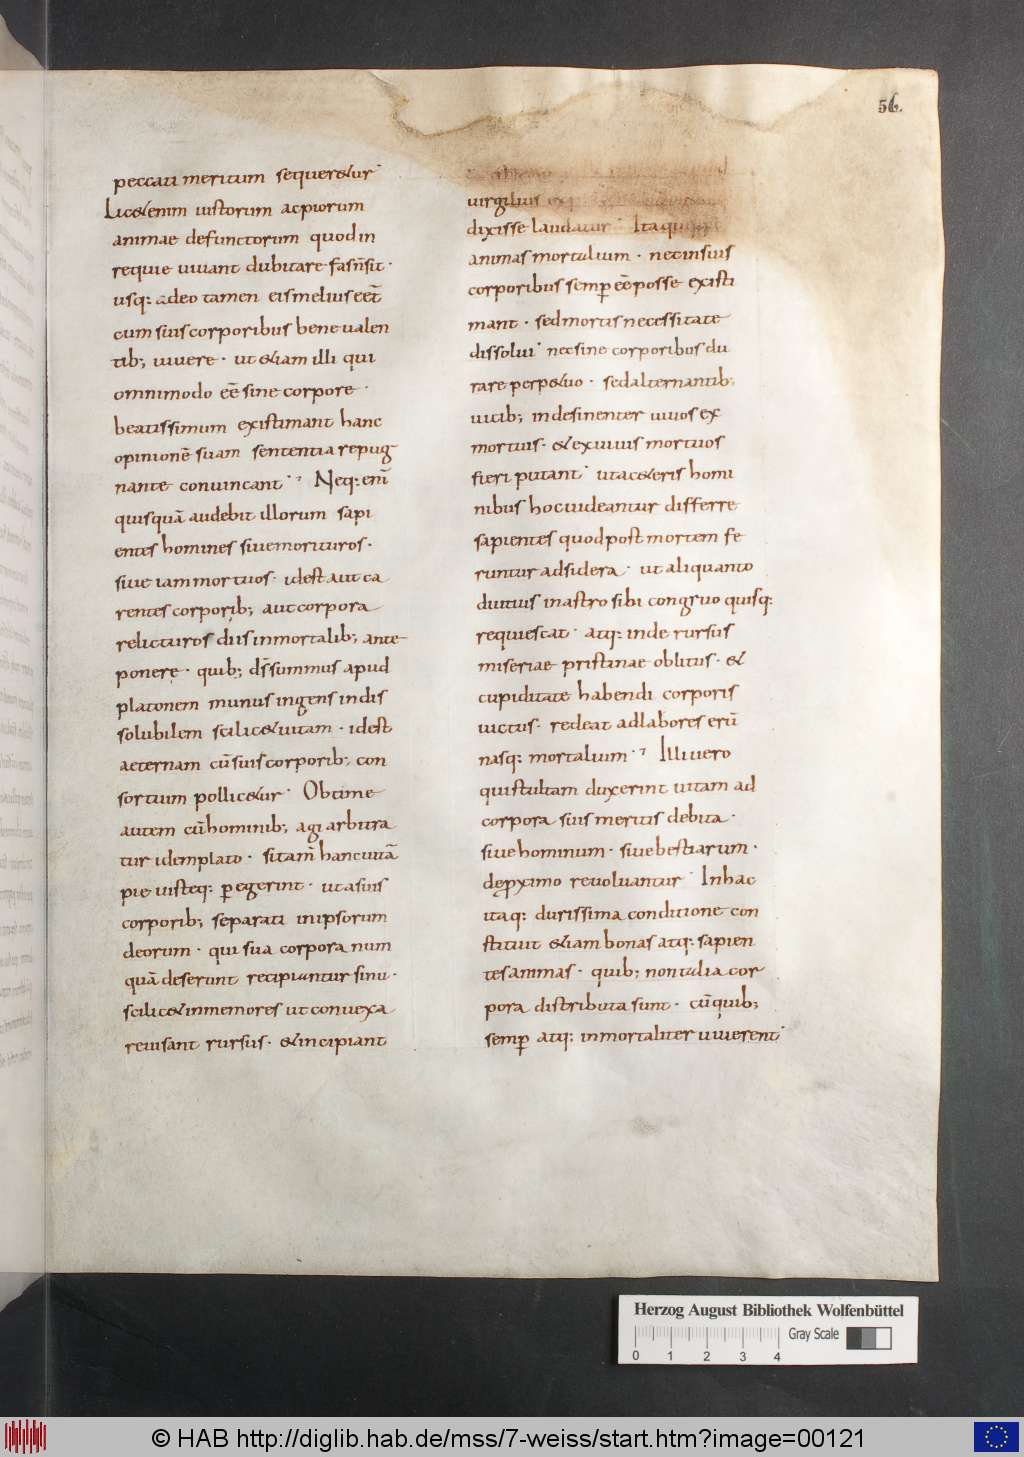 56.
peccati meritum sequer&ur·
Lic&enim iustorum acpiorum
animae defunctorum quodin
requie uiuant dubitare fasn̄sit·
usq: adeo tamen eismeliuseēt
cum suiscorporibus beneualen
tib; uiuere· ut &iam illi qui
omnimodo eē sine corpore·
beatissimum existimant hanc
opinionē suam sententia repug
nante conuincant· Neq: enī
quisquā audebit illorum sapi
entes homines siuemorituros·
siue iam mortuos· idest aut ca
rentes corporib; aut corpora
relicturos diis inmortalib; ante
ponere· quib; ds̄summus apud
platonem munus ingens indis
solubilem scilic&uitam· idest
aeternam cū suis corporib; con
sortium pollic&ur· Obtime
autem cū hominib; agi arbitra
tur idemplato· sitam̄ hancuitā
pie iusteq: p̲egerint· ut asuis
corporib; separati inipsorum
deorum· qui sua corpora num
quā deserunt recipiantur sinu·
scilic&inmemores ut conuexa
reuisant rursus· &incipiant
uirgilius ex
dixisse laudatur· Itaq
animas mortalium· necinsuis
corporibus semp̲ eē posse existi
mant· sedmortis necessitate
dissolui· necsine corporibus du
rare perp&uo· sedalternantib;
uicib; indesinenter uiuos ex
mortuis· &exuiuis mortuos
fieri putant· utac&eris homi
nibus hocuideantur differre
sapientes quod post mortem fe
runtur adsidera· ut aliquanto
diutius inastro sibi congruo quisq:
requiescat· atq: inde rursus
miseriae pristinae oblitus· &
cupiditate habendi corporis
uictus· redeat adlabores erū
nasq: mortalium· Illiuero
quistultam duxerint uitam ad
corpora suis meritis debita·
siuehominum· siuebestiarum·
dep̲ximo reuoluantur· Inhac
itaq: durissima conditione con
stituit &iam bonas atq: sapien
tesanimas· quib; nontalia cor
pora distributa sunt· cū quib;
semp̲ atq: inmortaliter uiuerent·
Herzog August Bibliothek Wolfenbüttel
Gray Scale
0 1 2 3 4
© HAB http://diglib.hab.de/mss/7-weiss/start.htm?image=00121